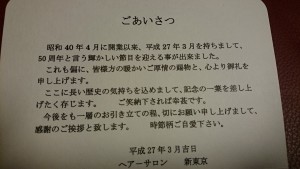 ごあいさつ
昭和40年4月に開業以来、平成27年3月を持ちまして、
50周年と言う輝かしい節目を迎える事が出来ました。
これも偏に、皆様方の暖かいご厚情の賜物と、心より御礼を
申し上げます。
ここに長い歴史の気持ちを込めまして、記念の一葉を差し上
げたく存じます。 ご笑納下されば幸甚です。
今後をも一層のお引き立ての程、切にお願い申し上げまして、
感謝のご挨拶と致します。 時節柄ご自愛下さい。
平成27年3月吉日
ヘアーサロン 新東京